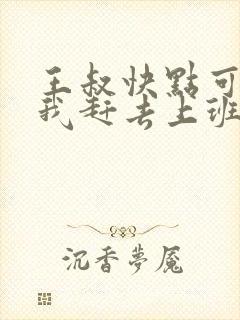 王叔快點可
我赶去上班
沉香夢魘